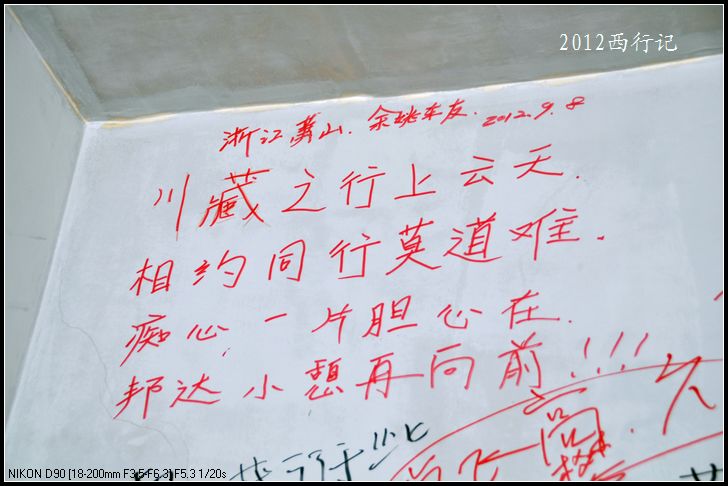 2012西行记
浙江萧山.余姚车友.2012.9.8
川藏之行上云天.
相约同行莫道难.
痴心一片胆心在.
邦达小憩再向前!!!
NIKON D90 [18-200mm F3.5-F6.3] F5.3 1/20s